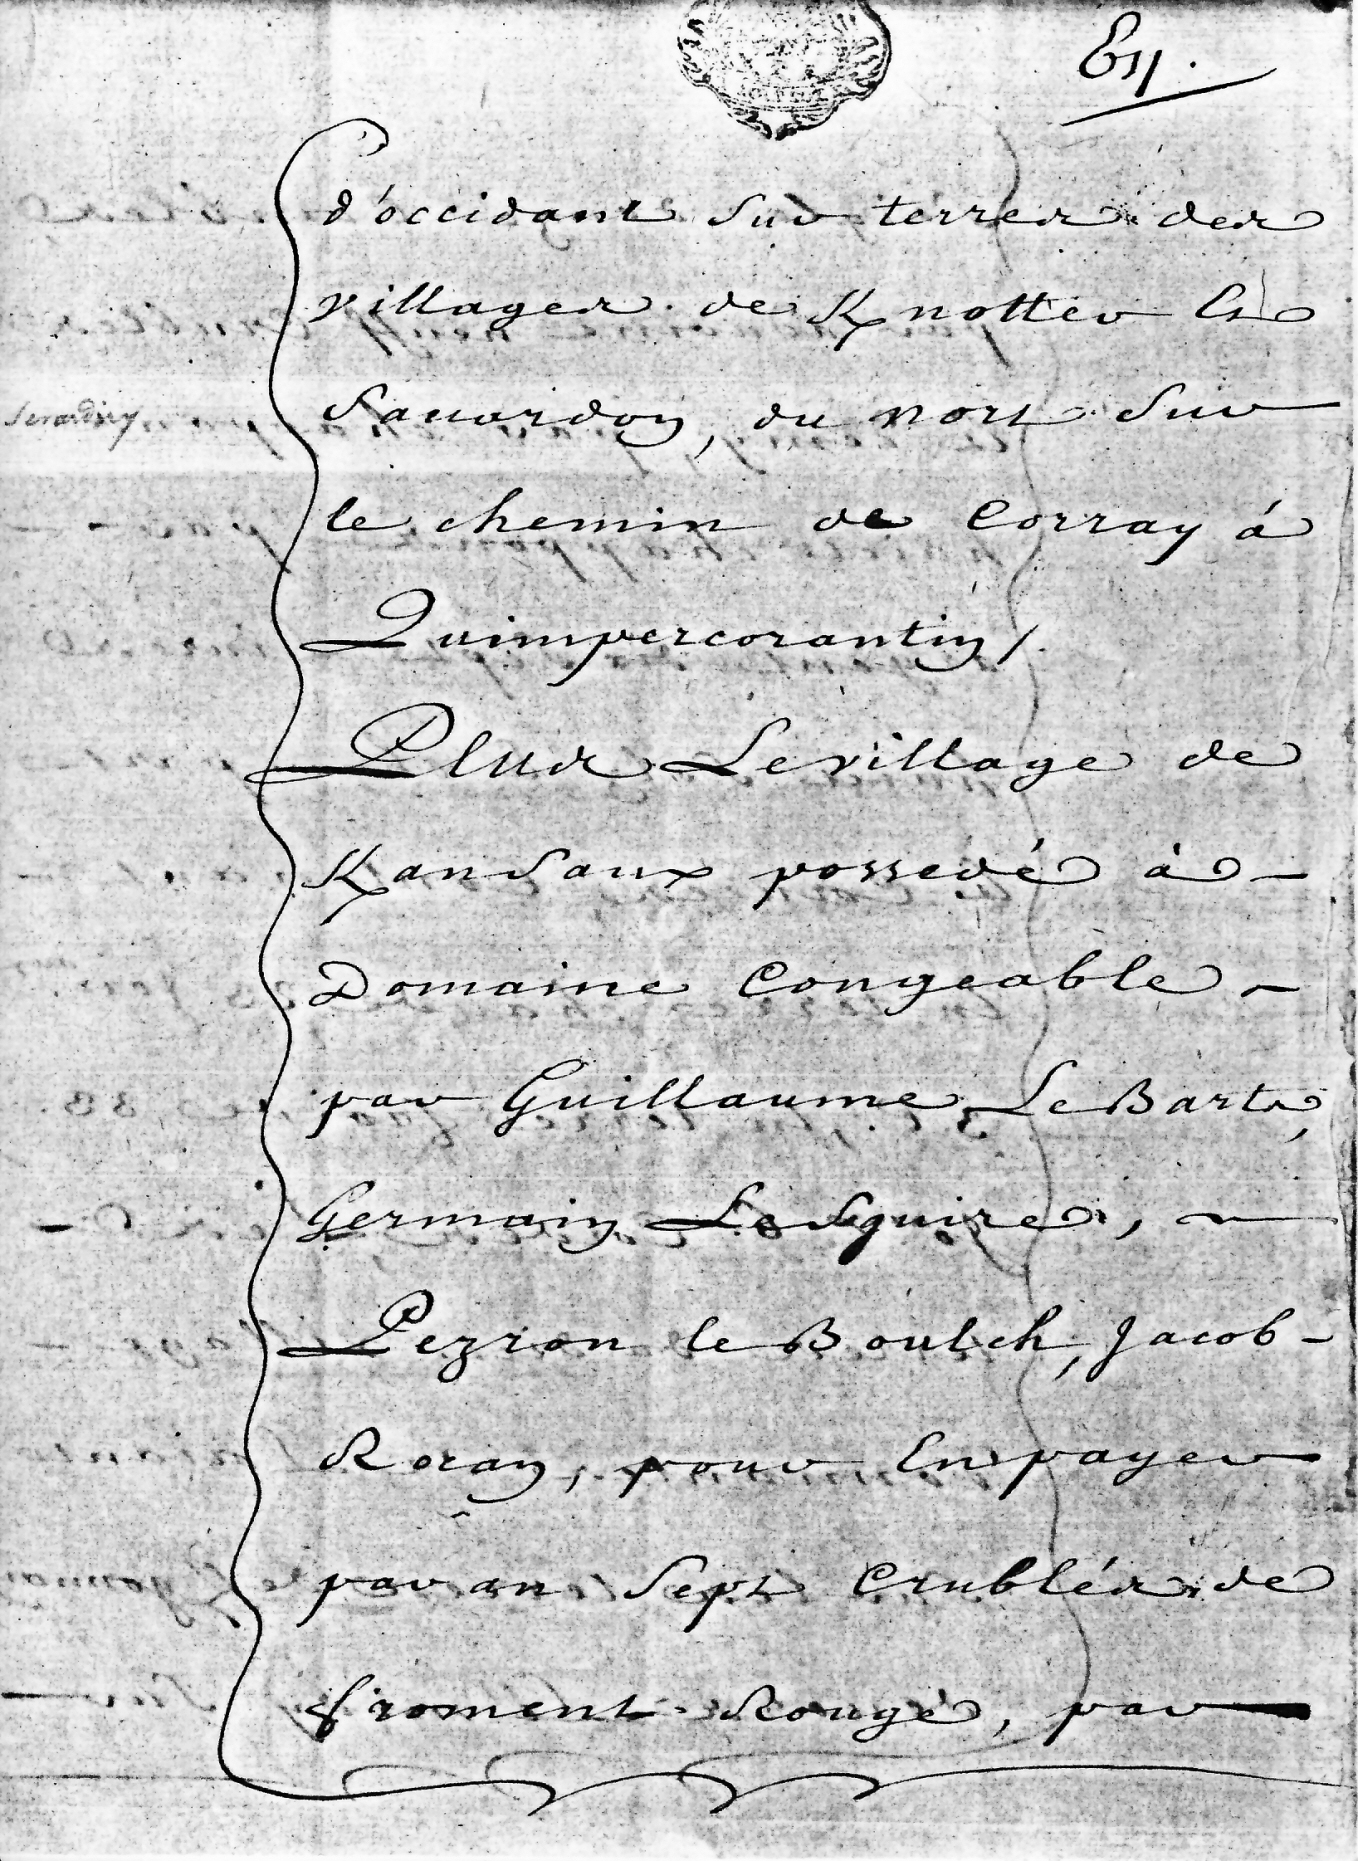 d'occidant sur terres des
villages de Knotter Et
Sauardoy, du nort sur
le chemin de Corray á
Quimpercorantin /.
Plus Le village de
Kansaux possedé à
Domaine Congeable
par Guillaume Le Barts,
Germain LeSquire,
Pezron le Boulch, Jacob
Rozay, pour En payer
par an Sept Crublés de
froment Rouge, par